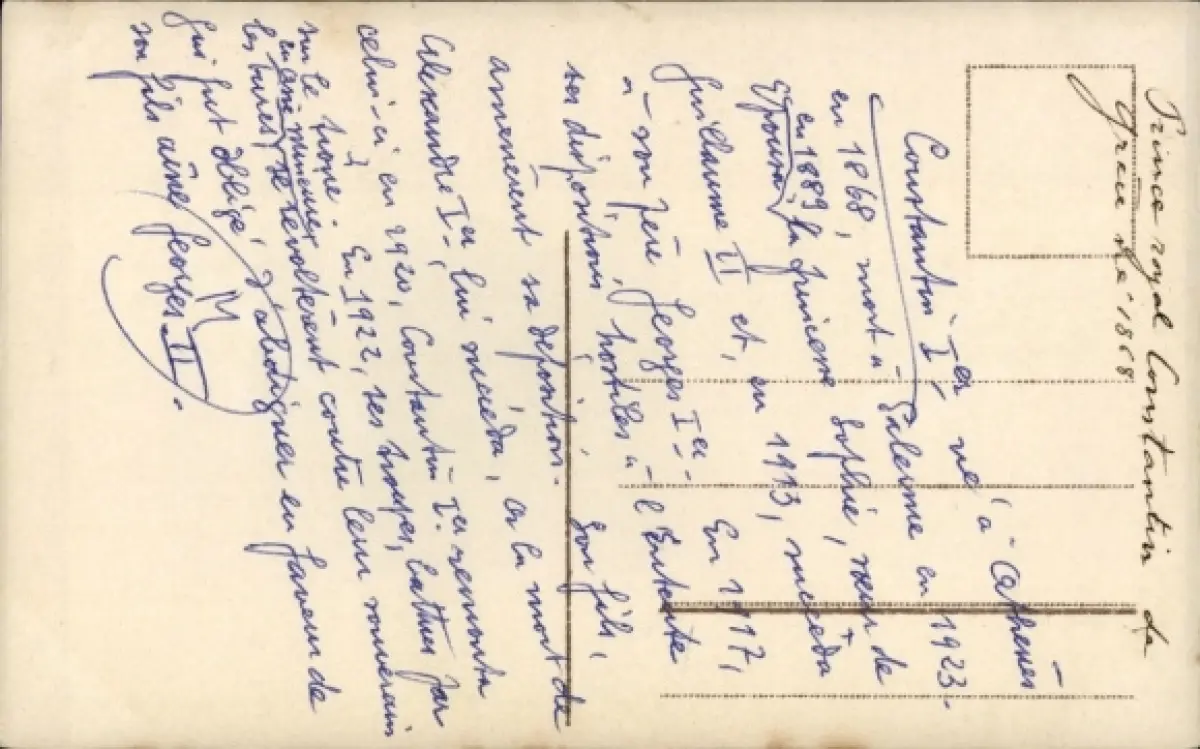 Prince royal Constantin de
Grèce né 1868
Constantin Ier né à Athènes
en 1868, mort à Palerme en 1923.
Epousa, en 1889 la princesse Sophie, sœur de
Guillaume II et, en 1913, succéda
à son père Georges Ier. En 1917,
ses dispositions, hostiles à l'Entente
amenèrent sa déposition. Son fils,
Alexandre Ier lui succéda, à la mort de
celui-ci en 1920, Constantin Ier remonta
sur le trône. En 1922, ses troupes, battues par
les turcs, en Asie mineure, se révoltèrent contre leur souverain
qui fut obligé d'abdiquer en faveur de
son fils aîné Georges II.